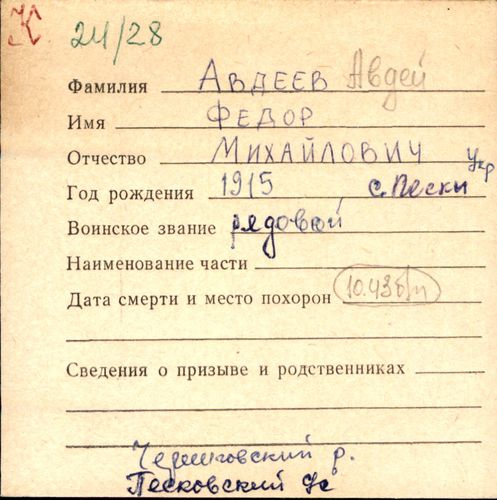 К 24/28
Фамилия АВДЕЕВ Авдей
Имя ФЕДОР
Отчество МИХАЙЛОВИЧ Укр
Год рождения 1915 с. Пески
Воинское звание рядовой
Наименование части
Дата смерти и место похорон 10.43 б/п
Сведения о призыве и родственниках
Черниговский р.
Песковский